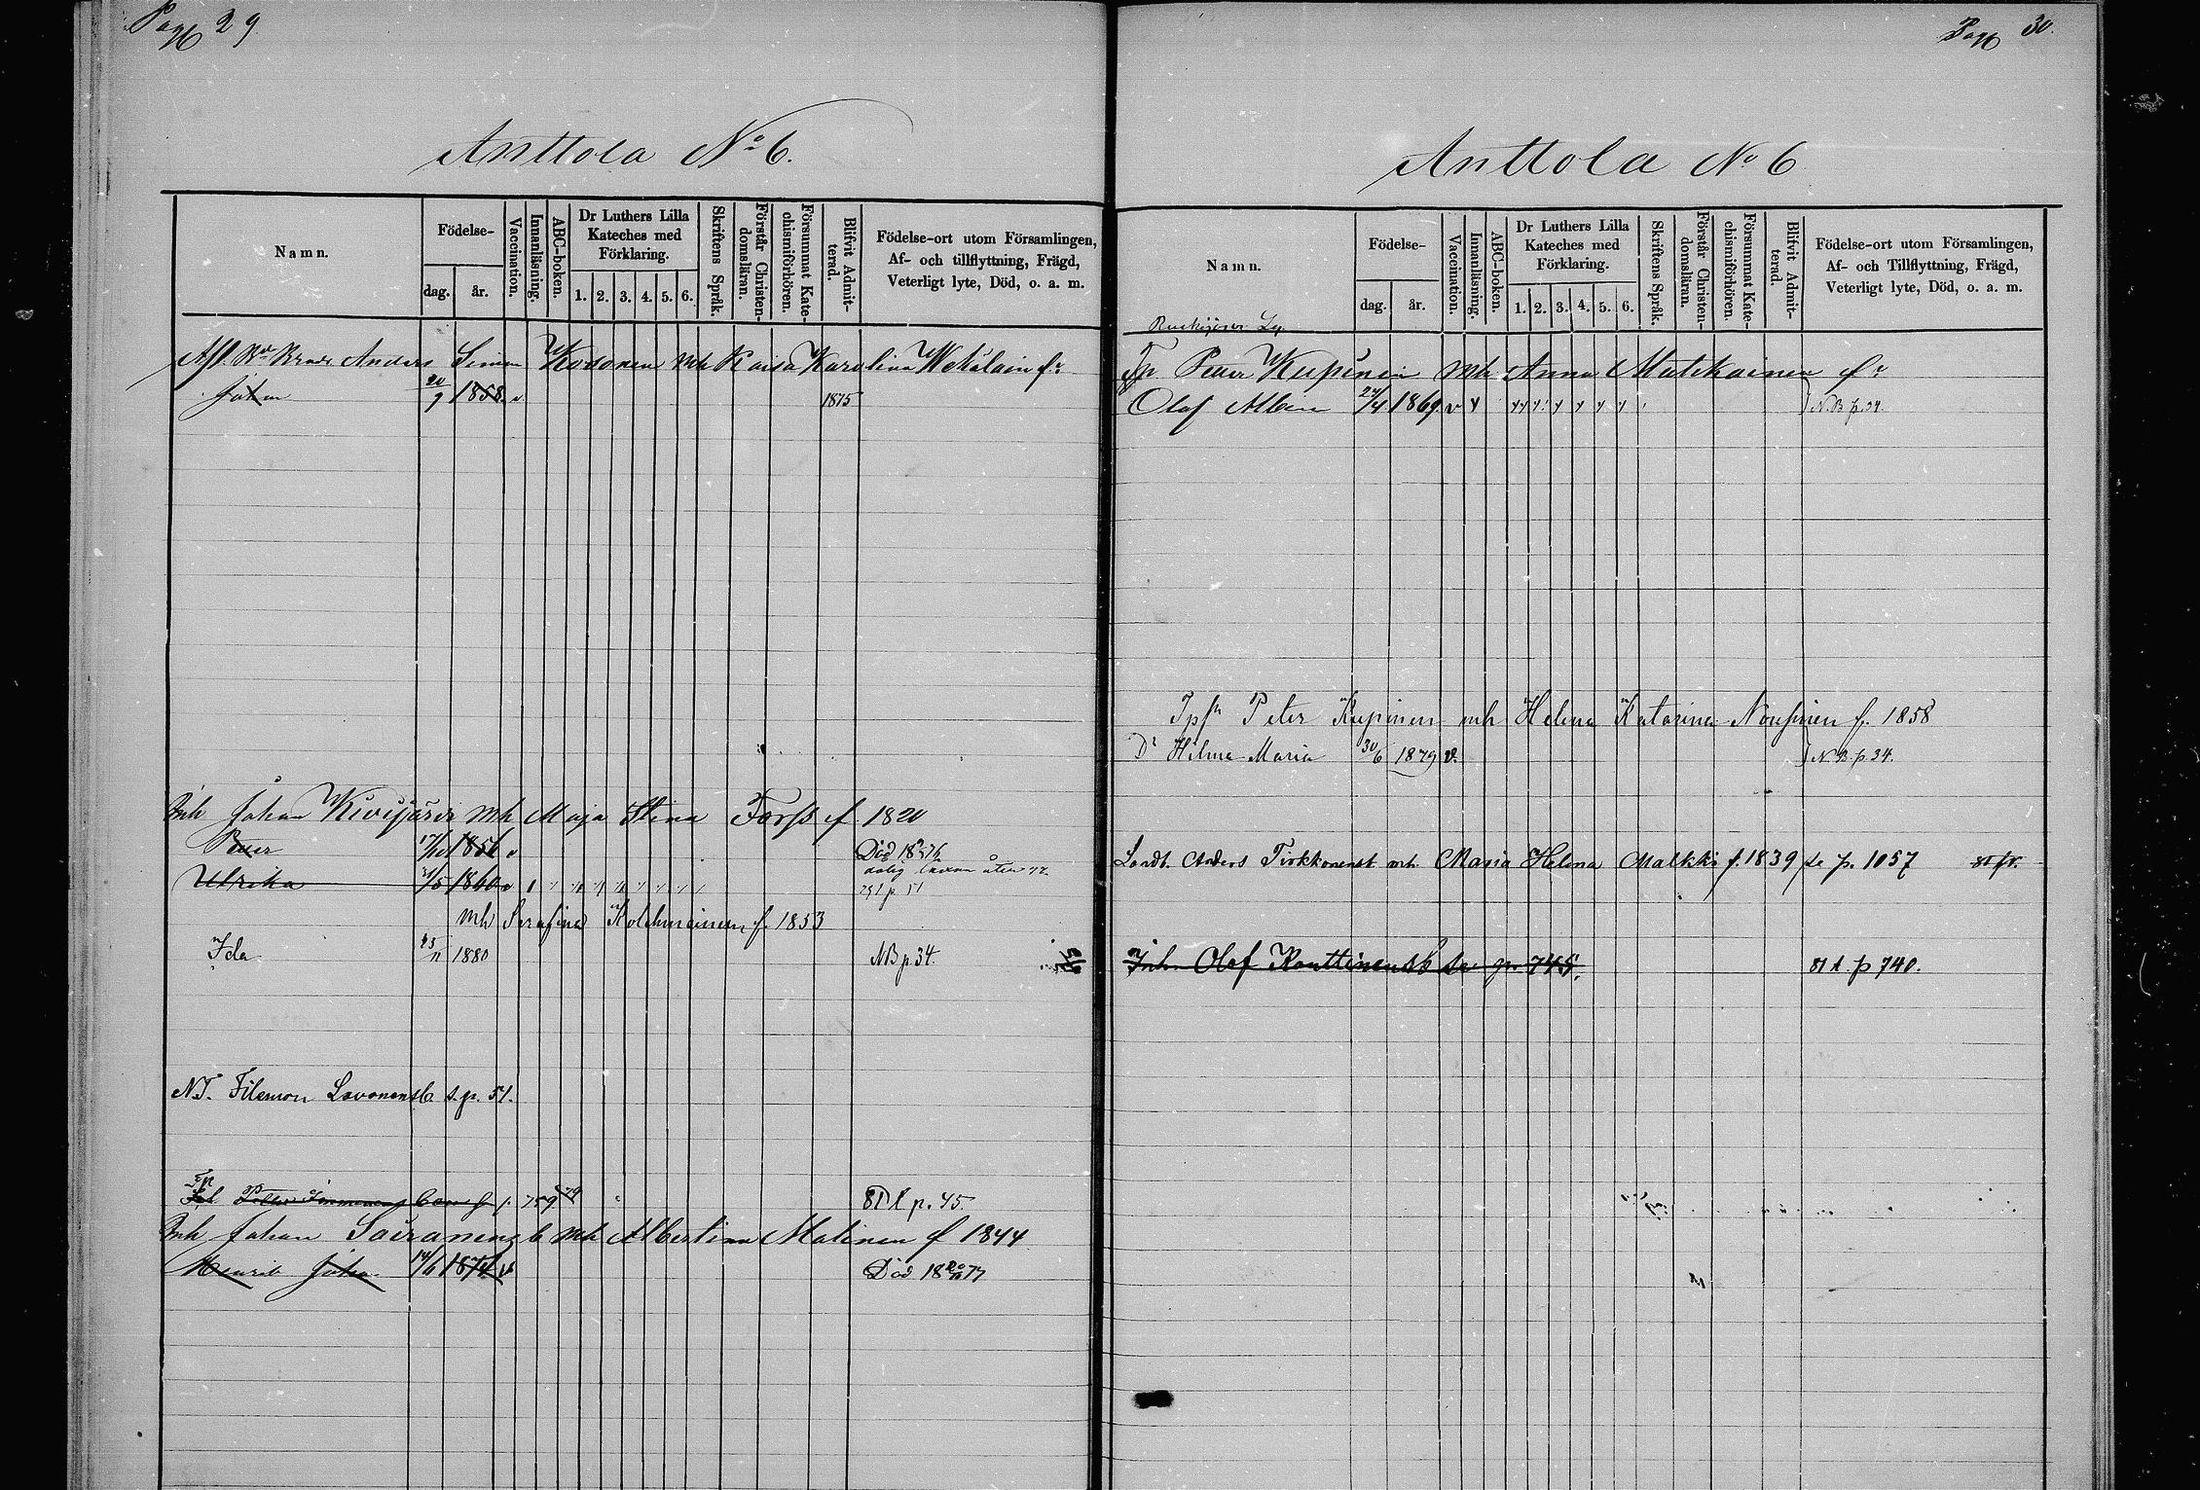 Pag 29
Anttola No 6.
Namn.
Födelse-
dag.
år.
Vaccination.
Innanläsning.
ABC-boken.
Dr Luthers Lilla
Kateches med
Förklaring.
1. 2. 3. 4. 5. 6.
Skriftens Språk.
Förstår Christen-
domsläran.
Försummat Kate-
chismiförhören.
Blifvit Admit-
terad.
Födelse-ort utom Församlingen,
Af- och tillflyttning, Frägd,
Veterligt lyte, Död, o. a. m.
Anders Simon Kosonen mh Kaisa Karolina
Johan 20/9 1858. v 1875
Inh Johan Kivijärvi mh Maja Stina Forss f 1820
Petter 17/10 1856 v Död
Ulrika 31/5 1860 v
mh Serafina Kolehmainen f. 1853
Ida 1880 NB p 34.
N.T. Filemon Lavonen s. p. 51.
p. 759 81 t p. 45.
Inh Johan mh Albertina Malinen f 1844
Henrik Johan 14/6 1874 v Död 18 77
Pag 30.
Anttola No 6
Namn.
Födelse-
dag.
år.
Vaccination.
Innanläsning.
ABC-boken.
Dr Luthers Lilla
Kateches med
Förklaring.
1. 2. 3. 4. 5. 6.
Skriftens Språk.
Förstår Christen-
domsläran.
Försummat Kate-
chismiförhören.
Blifvit Admit-
terad.
Födelse-ort utom Församlingen,
Af- och Tillflyttning, Frägd,
Veterligt lyte, Död, o. a. m.
Tp Petter Kupinen mh Anna Mutikainen
Olof Albin 24/4 1869. v N. B p. 34.
Peter Kupinen mh Helena Katarina Nousinen f. 1858
Dr Hilma Maria 30/6 1879 v. N. B. p. 34.
Anders Tirkkonen mh Maria Helena Malkki f. 1839 se p. 1057
Inh. Olof Konttinen se p. 745. 81 t. p 740.